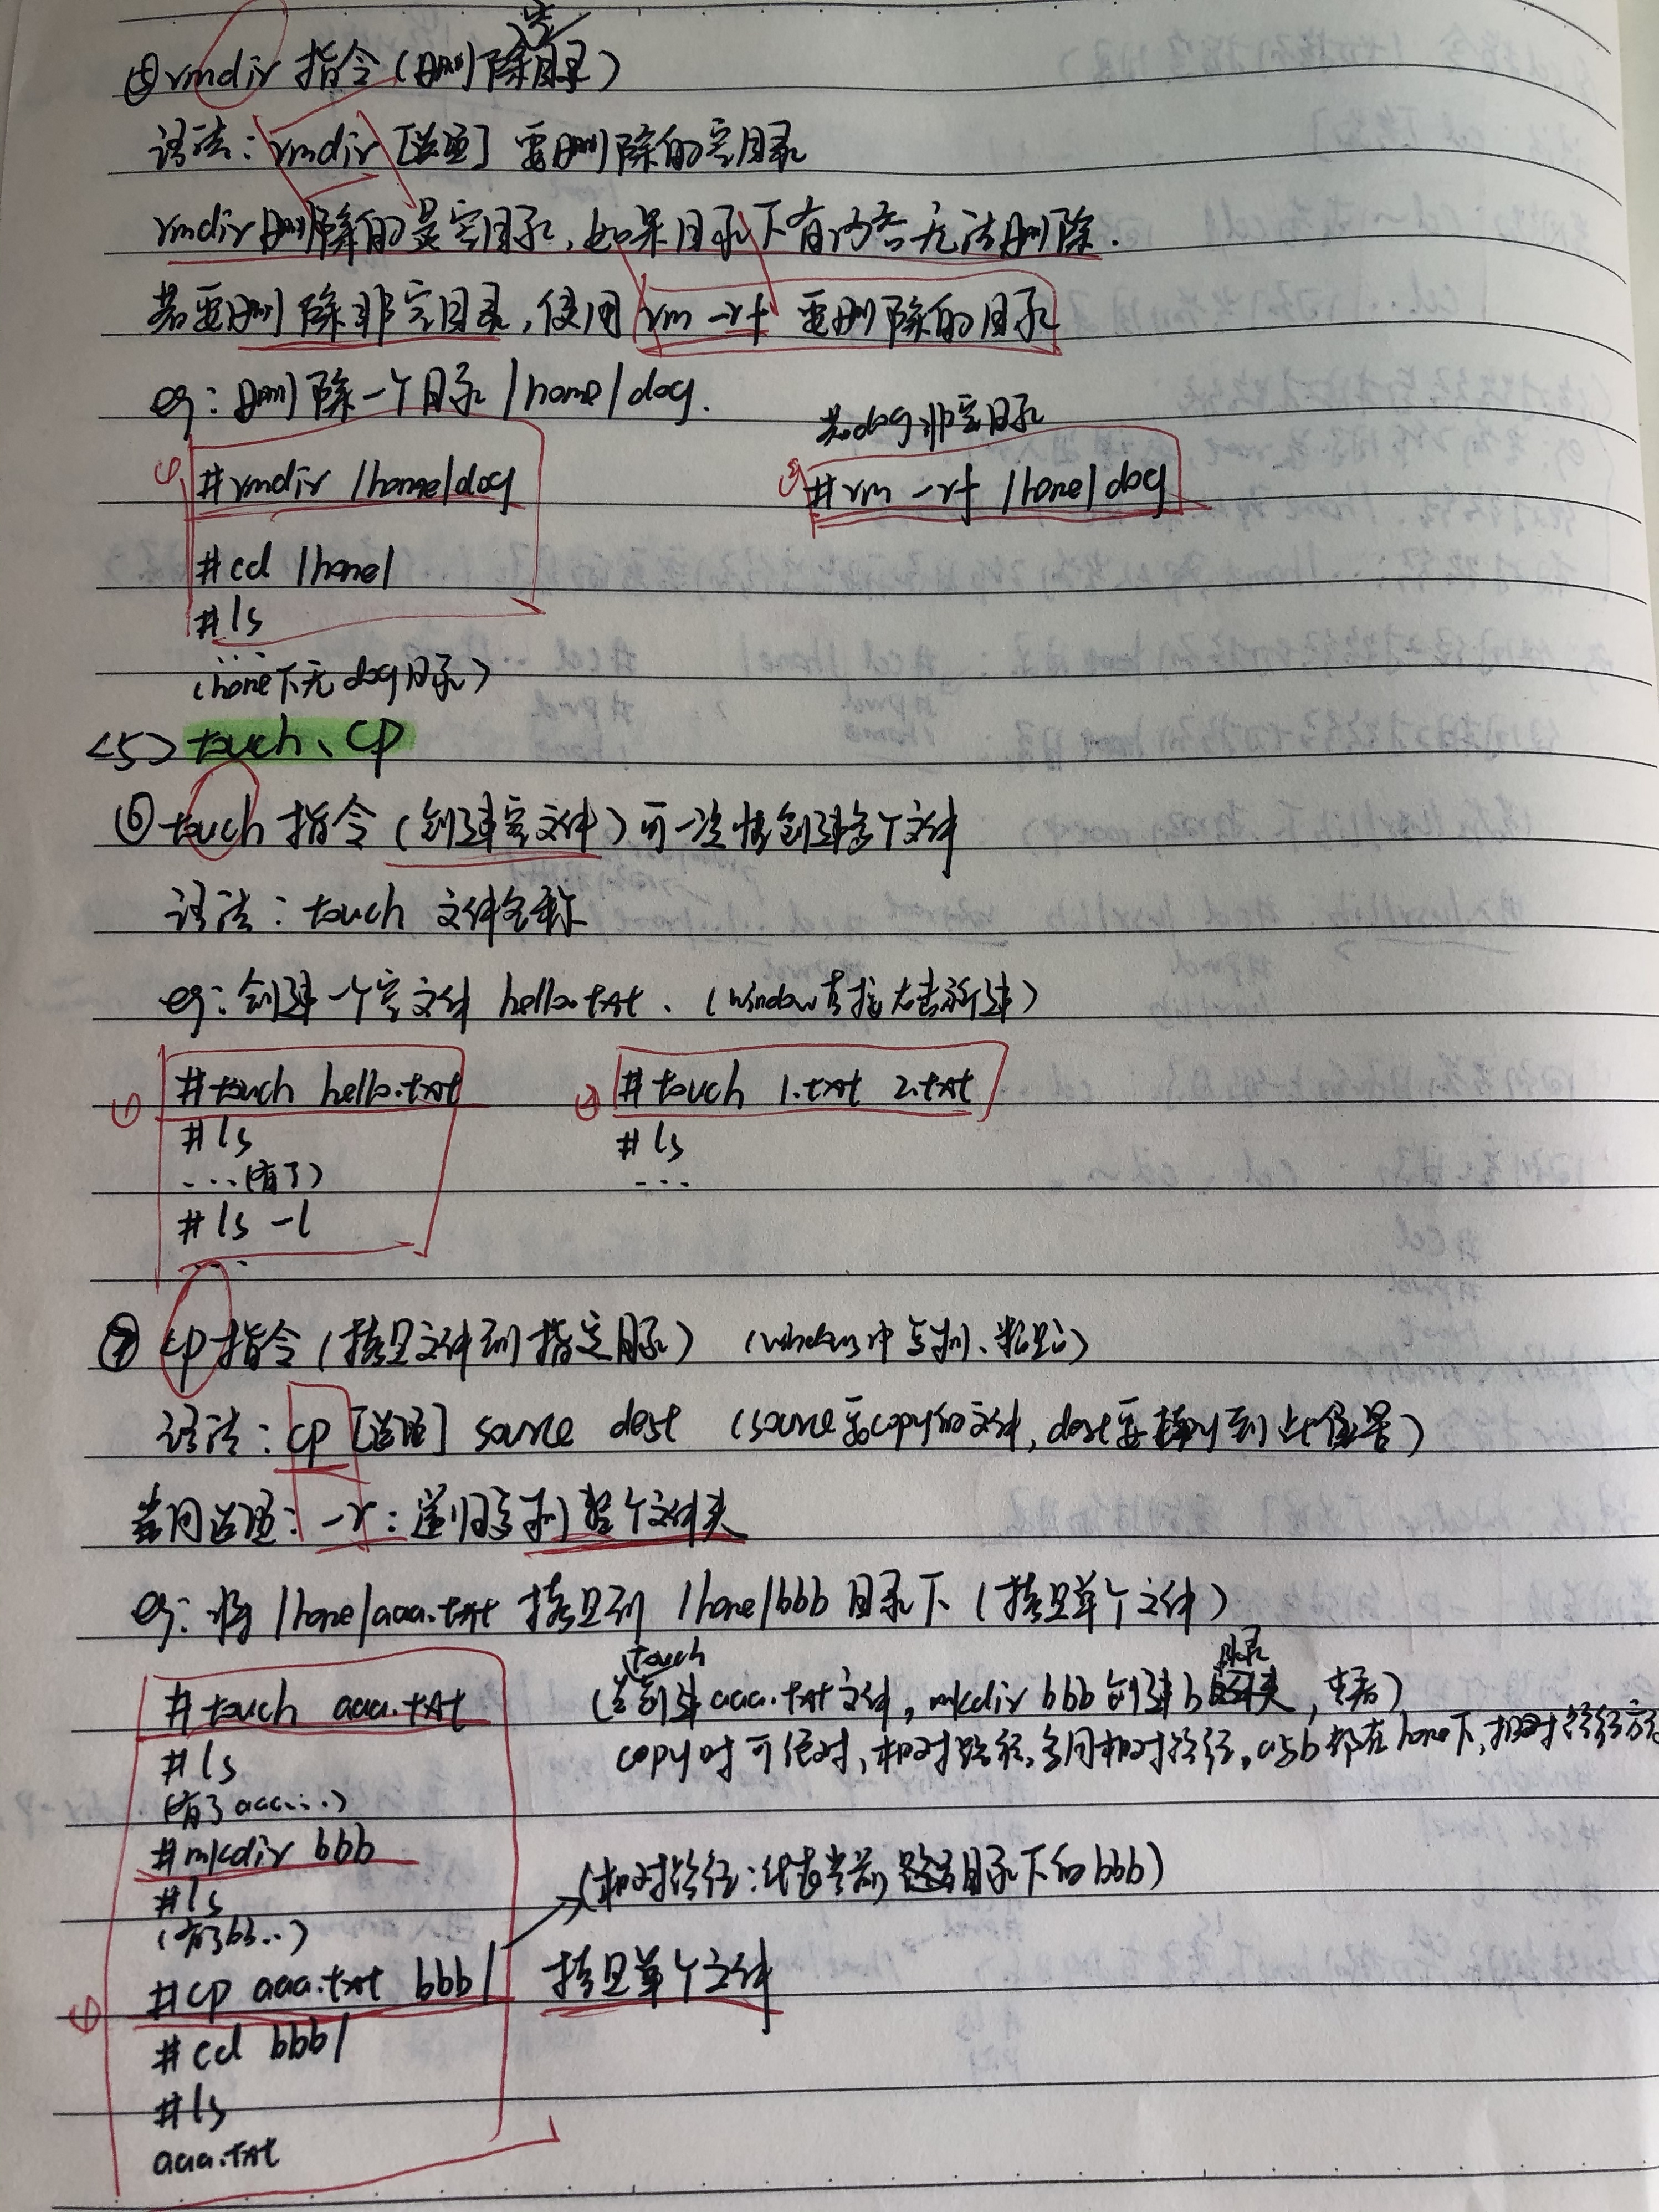 ⑤rmdir 指令(删除空目录)
语法:rmdir [选项] 要删除的空目录
rmdir删除的是空目录,如果目录下有内容无法删除.
若要删除非空目录,使用 rm -rf 要删除的目录
eg:删除一个目录 /home/dog.
若dog非空目录
① #rmdir /home/dog
② #rm -rf /home/dog
#cd /home/
#ls
...
(home下无dog目录)
<5> touch、cp
⑥touch 指令(创建空文件)可一次性创建多个文件
语法:touch 文件名称
eg:创建一个空文件 hello.txt、(window直接右击新建)
① #touch hello.txt
② #touch 1.txt 2.txt
#ls
#ls
...(有了)
...
#ls -l
...
⑦ cp 指令(拷贝文件到指定目录) (windows中复制、粘贴)
语法:cp [选项] source dest (source要copy的文件,dest要拷贝到此位置)
常用选项:-r:递归复制整个文件夹
eg:将 /home/aaa.txt 拷贝到 /home/bbb 目录下(拷贝单个文件)
#touch aaa.txt
(先touch创建aaa.txt文件,mkdir bbb创建b目录,
#ls
copy时可绝对,相对路径,多用相对路径,a与b都在home下,相对路径方
(有了aaa...)
#mkdir bbb
#ls
(相对路径:代表当前目录下的bbb)
(有了bb..)
① #cp aaa.txt bbb/ 拷贝单个文件
#cd bbb/
#ls
aaa.txt